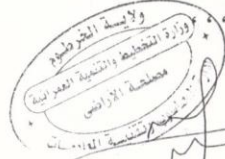 ولاية الخرطوم
وزارة التخطيط والتنمية العمرانية
مصلحة الاراضي